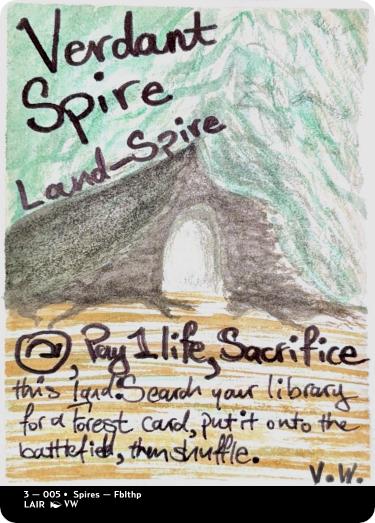 Verdant
Spire
Land–Spire
, Pay 1 life, Sacrifice
this land: Search your library
for a Forest card, put it onto the
battlefield, then shuffle.
V.W.
3 — 005 • Spires — Fblthp
LAIR VW